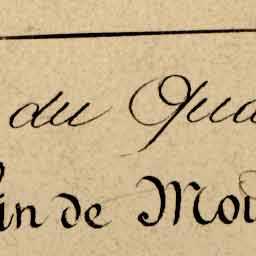 du Qua
in de Mou